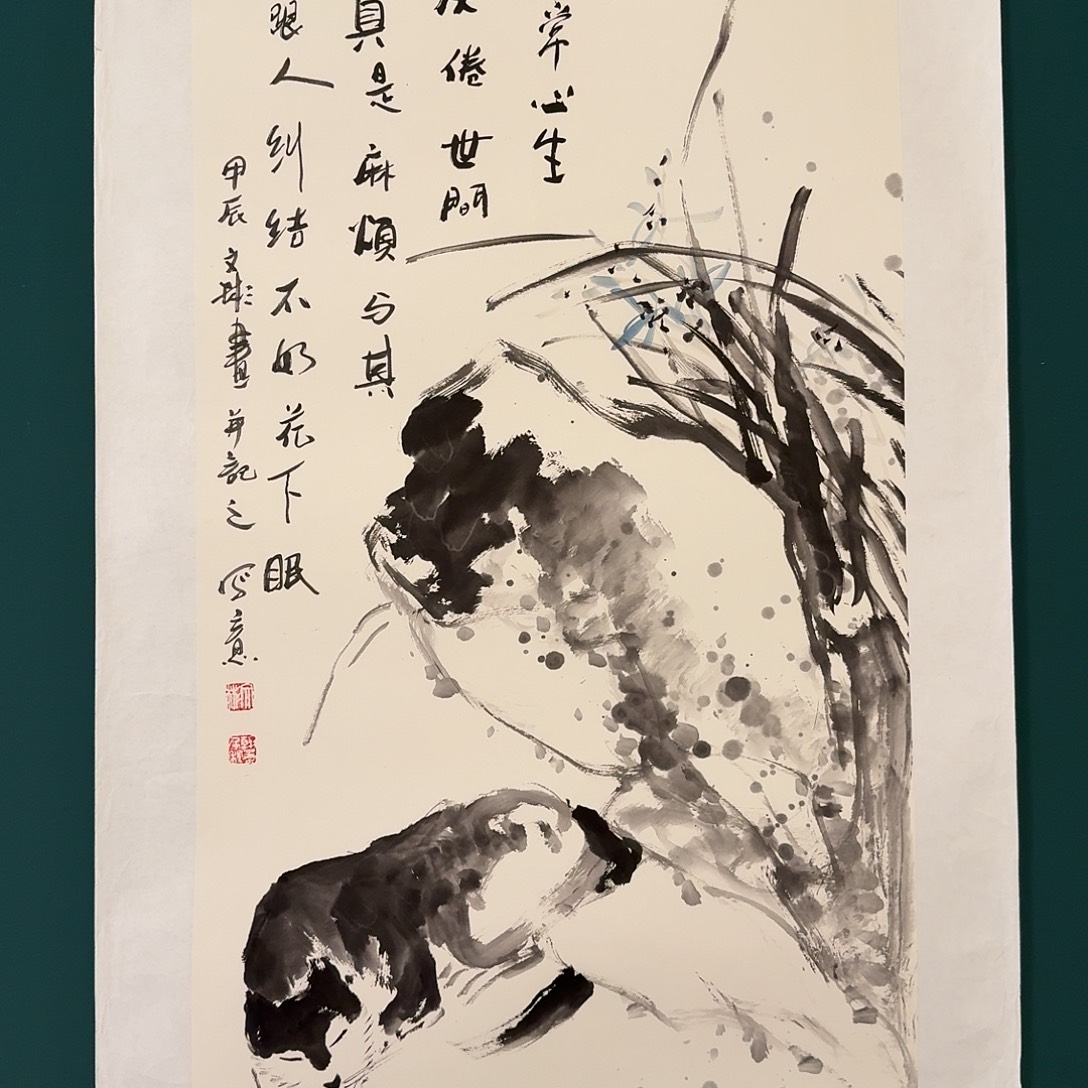 常心生
倦世間
真是麻煩与其
跟人糾结不如花下眠
甲辰文彬畫并記之写意